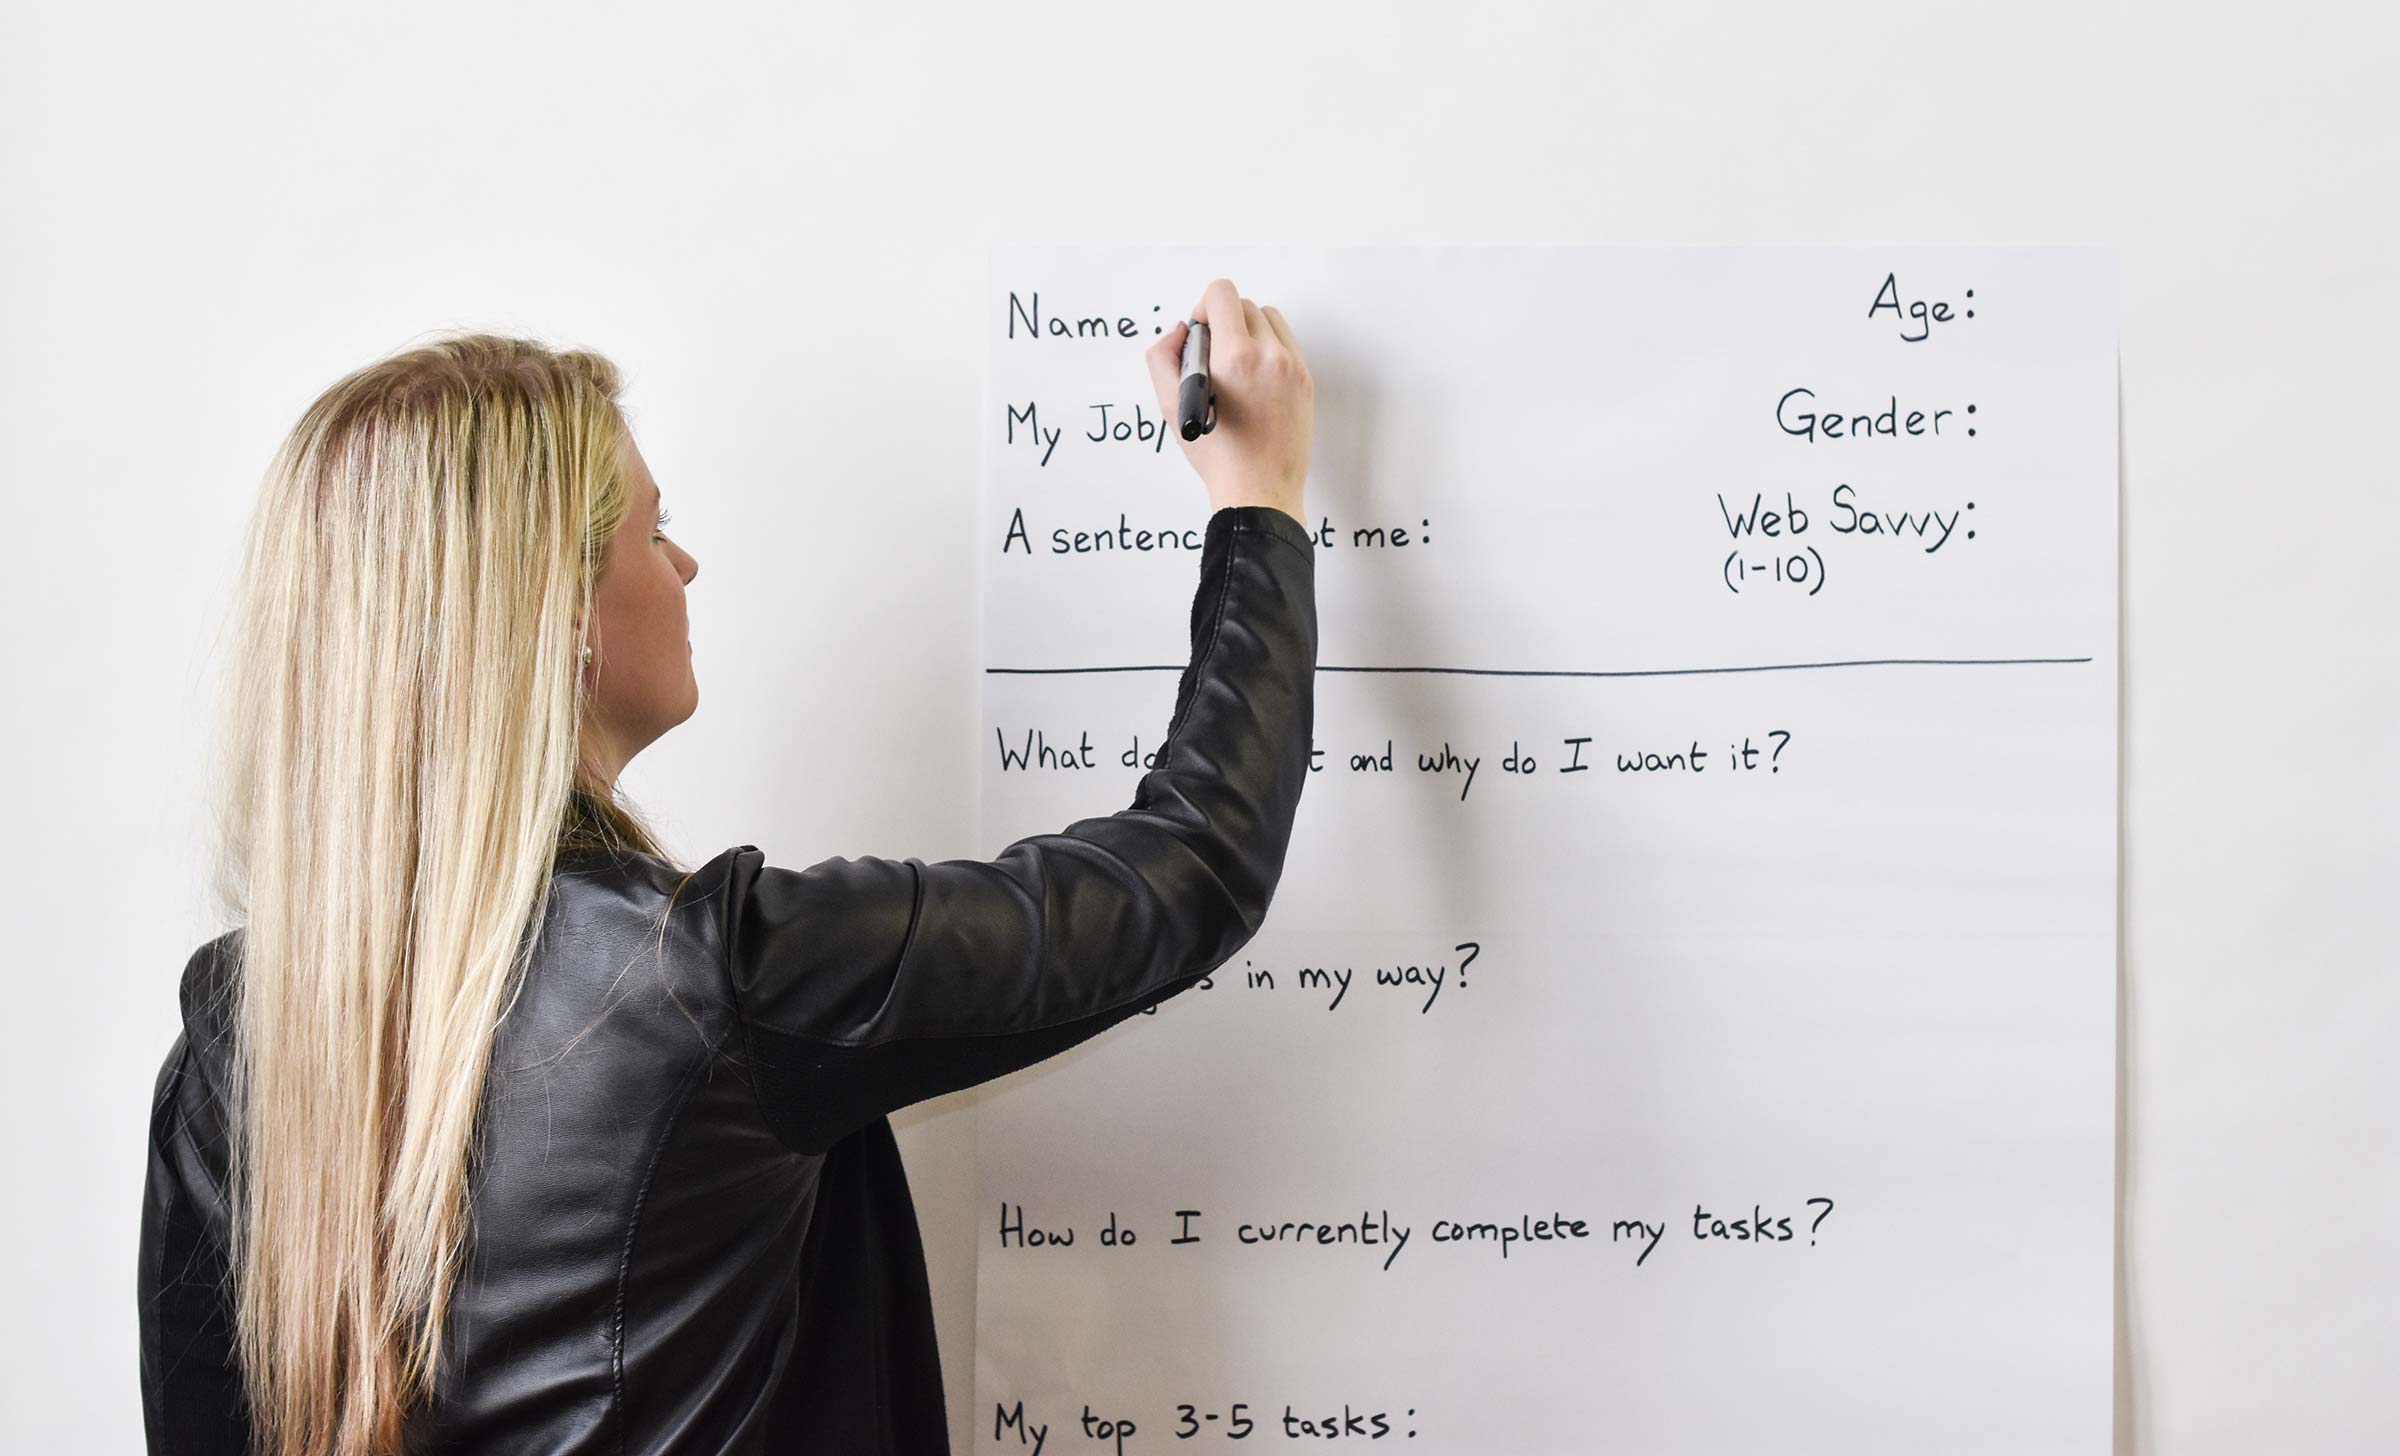 Name: Age:
My Job/ Gender:
A me: Web Savvy:
(1-10)
What and why do I want it?
in my way?
How do I currently complete my tasks?
My top 3-5 tasks: